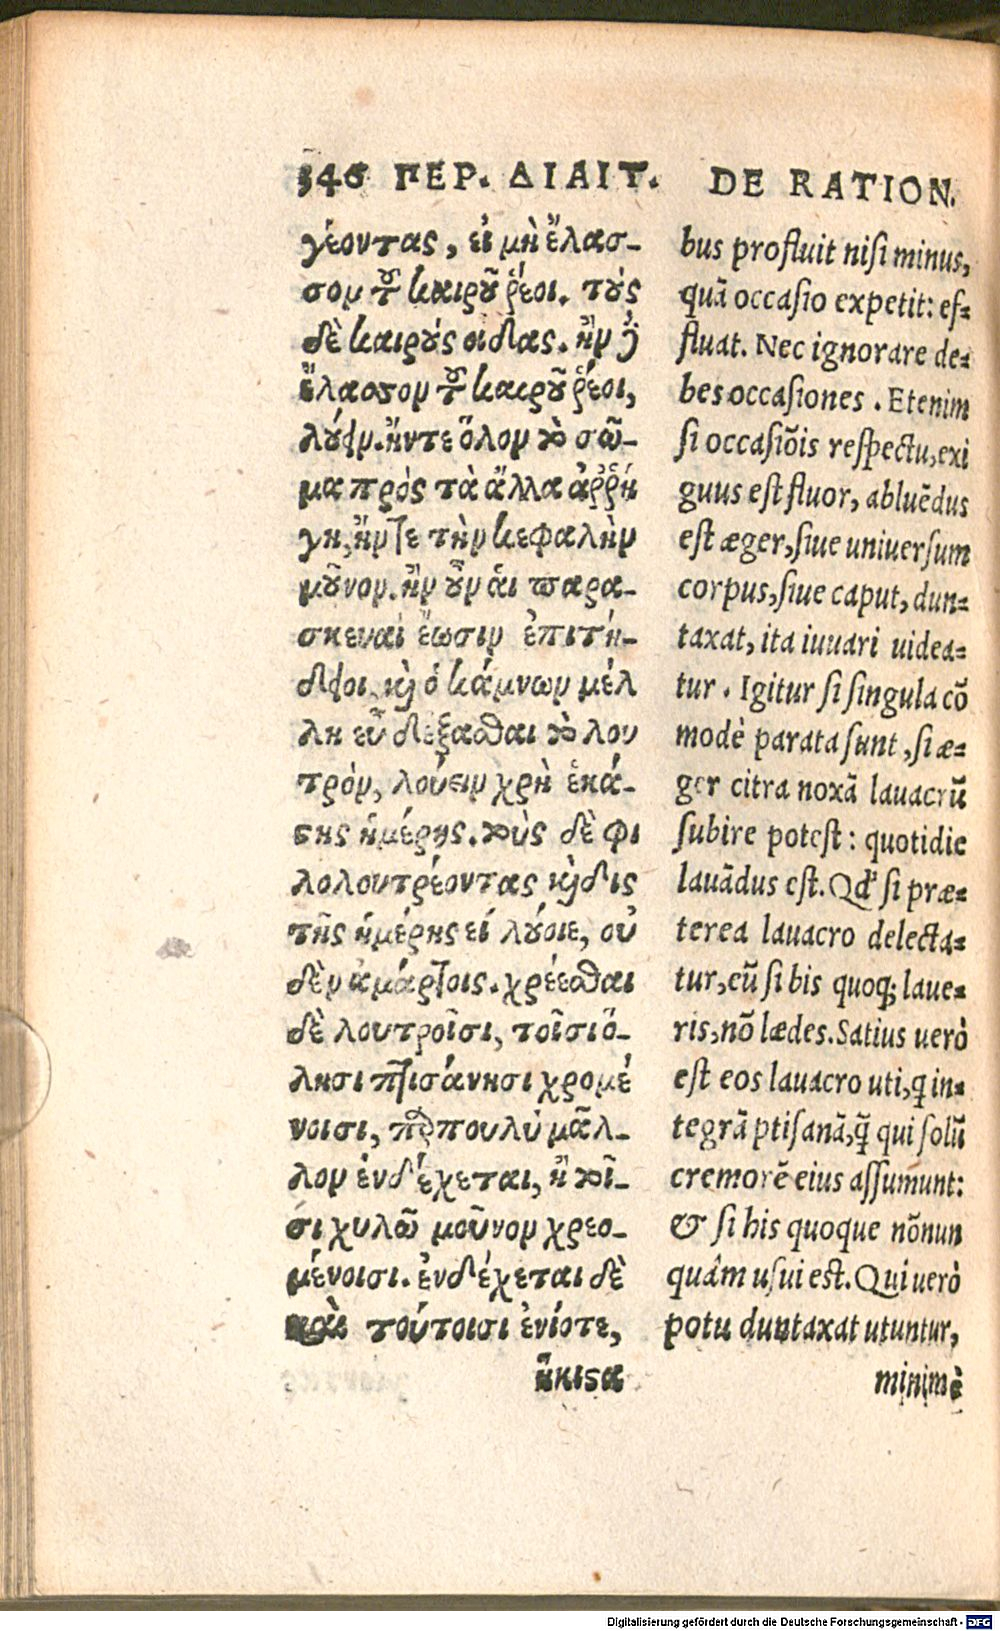 346 ΠΕΡ. ΔΙΑΙΤ.
γέοντας, εἰ μὴ ἔλασ-
σον τ̃ȣ καιρȣ͂ ῥέοι. τȣ́ς
δὲ καιρȣ́ς οἶδας. ἢν ϳ
ἔλασσον τ̃ȣ καιρȣ͂ ῥέοι,
λύειν. ἤν τε ὅλον τὸ σῶ-
μα πρὸς τὰ ἄλλα ἀῤῥή
γη, ἤν τε τὴν κεφαλὴν
μȣ͂νον. ἢν ȣ̓͂ν ἁι παρα-
σκευαὶ ἔωσιν ἐπιτή-
δειοι, κὶ ὁ κάμνων μέλ
λη εὖ δέξασθαι τὸ λου
τρὸν, λούειν χρὴ ἑκά-
ϛης ἡμέρης. τοὺς δὲ φι
λολουτρέοντας κὶ δὶς
τῆς ἡμέρης εἰ λȣ́οιε, οὐ
δὲν ἁμάρτοις. χρέεσθαι
δὲ λουτροῖσι, τοῖσι ὅ-
λησι πτισάνησι χρομέ
νοισι, πδπουλὺ μᾶλ-
λον ἐνδέχεται, ἢ τοῖ-
σι χυλῶ μοῦνον χρεο-
μένοισι. ἐνδέχεται δὲ
καὶ τούτοισι ἐνίοτε,
ἥκιϛα
DE RATION.
bus profluit nisi minus,
quã occasio expetit: ef-
fluat. Nec ignorare de-
bes occasiones. Etenim
si occasiõis respectu, exi
guus est fluor, abluẽdus
est æger, siue uniuersum
corpus, siue caput, dun-
taxat, ita iuuari uidea-
tur. Igitur si singula cõ
modè parata sunt, si æ-
ger citra noxã lauacrũ
subire potest: quotidie
lauãdus est. Qd' si præ-
terea lauacro delecta-
tur, eũ si bis quoq; laue-
ris, nõ lædes. Satius uerò
est eos lauacro uti, q̇ in-
tegrã ptisanã, q̃ qui solũ
cremorẽ eius assumunt:
& si his quoque nõnun
quàm usui est. Qui uerò
potu duntaxat utuntur,
minimè
Digitalisierung gefördert durch die Deutsche Forschungsgemeinschaft - DFG